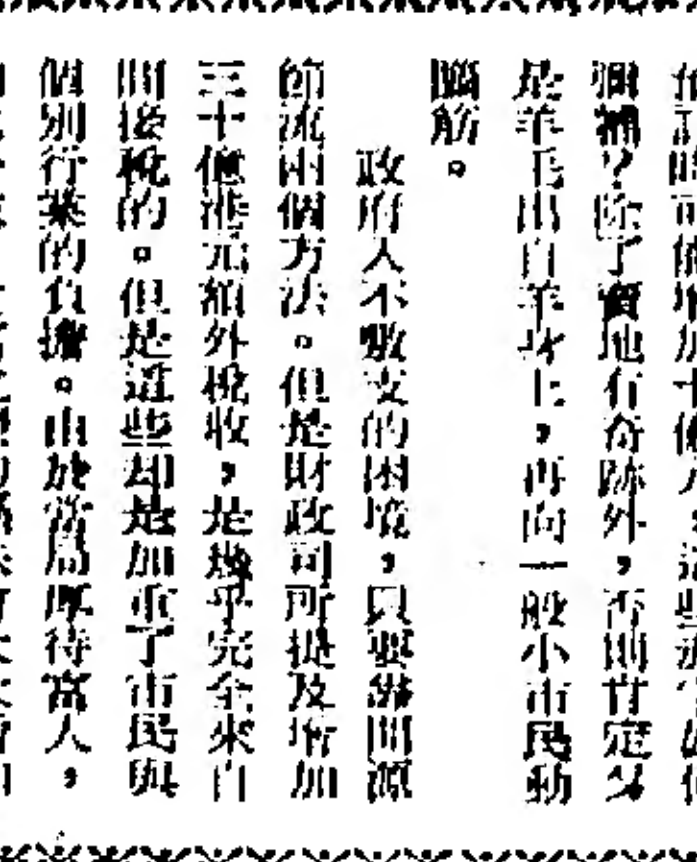 時可能增加十億元
彌補？除了賣地有奇跡外，否則肯定又
是羊毛出自羊身上，再向一般小市民動
腦筋。
政府入不敷支的困境，只要靠開源
節流兩個方法。但是財政司所提及增加
三十億港元額外稅收，是幾乎完全來自
間接稅的。但是這些却是加重了市民與
個別行業的負擔。由於當局厚待富人，